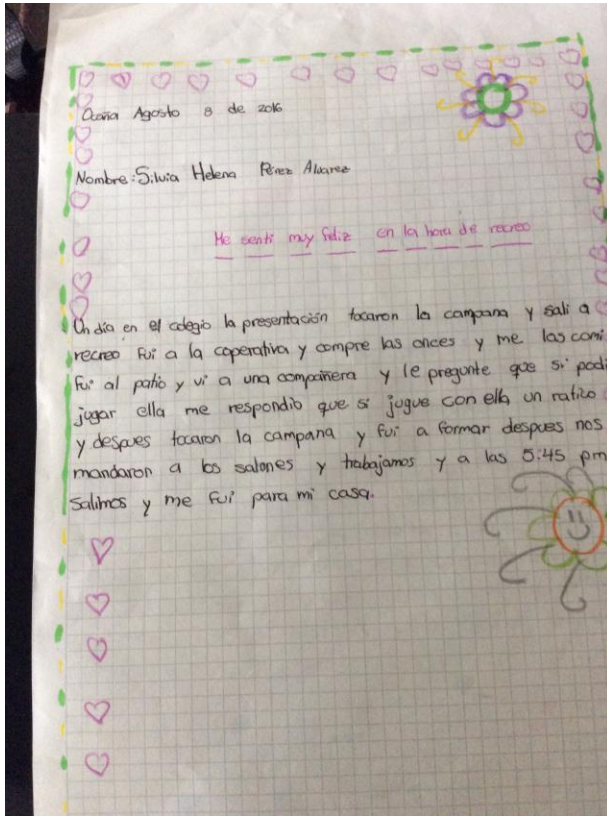 Ocaña Agosto 8 de 2016
Nombre: Silvia Helena Pérez Alvarez
Me senti muy feliz en la hora de recreo
Un dia en el colegio la presentación tocaron la campana y sali a
recreo fui a la coperativa y compre las onces y me las comi
fui al patio y vi a una compañera y le pregunte que si podi
jugar ella me respondio que si jugue con ella un ratico
y despues tocaron la campana y fui a formar despues nos
mandaron a los salones y trabajamos y a las 5:45 pm
salimos y me fui para mi casa.